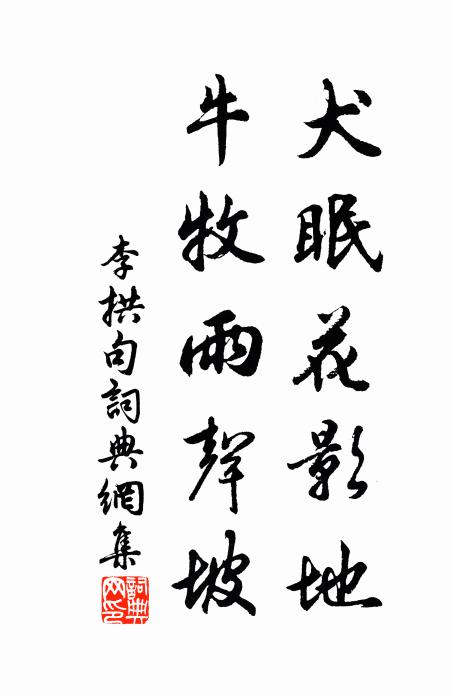 犬眠花影地
牛牧雨聲坡
李拱句詞典網集
詞典网印